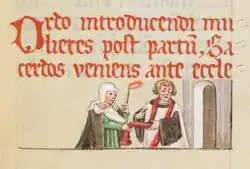 Ordo introducendi mu
lieres post partū, Sa
cerdos veniens ante eccle